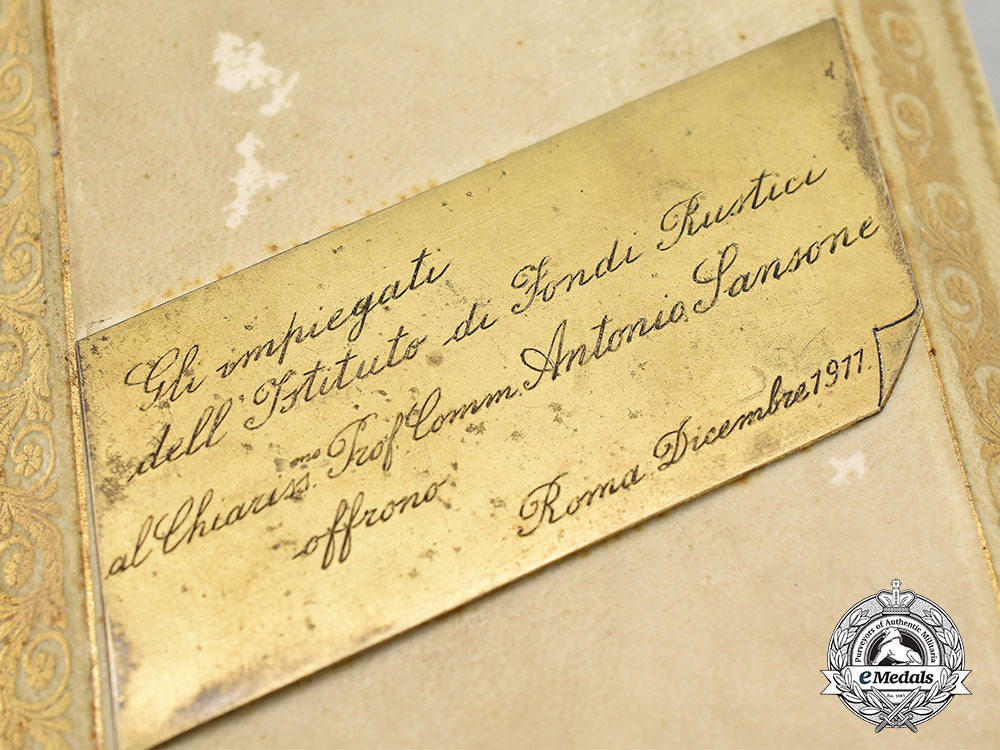 Gli impiegati
dell' Istituto di Fondi Rustici
al Chiariss.mo Prof. Comm. Antonio Sansone
offrono
Roma Dicembre 1911.
Purveyors of Authentic Militaria
eMedals